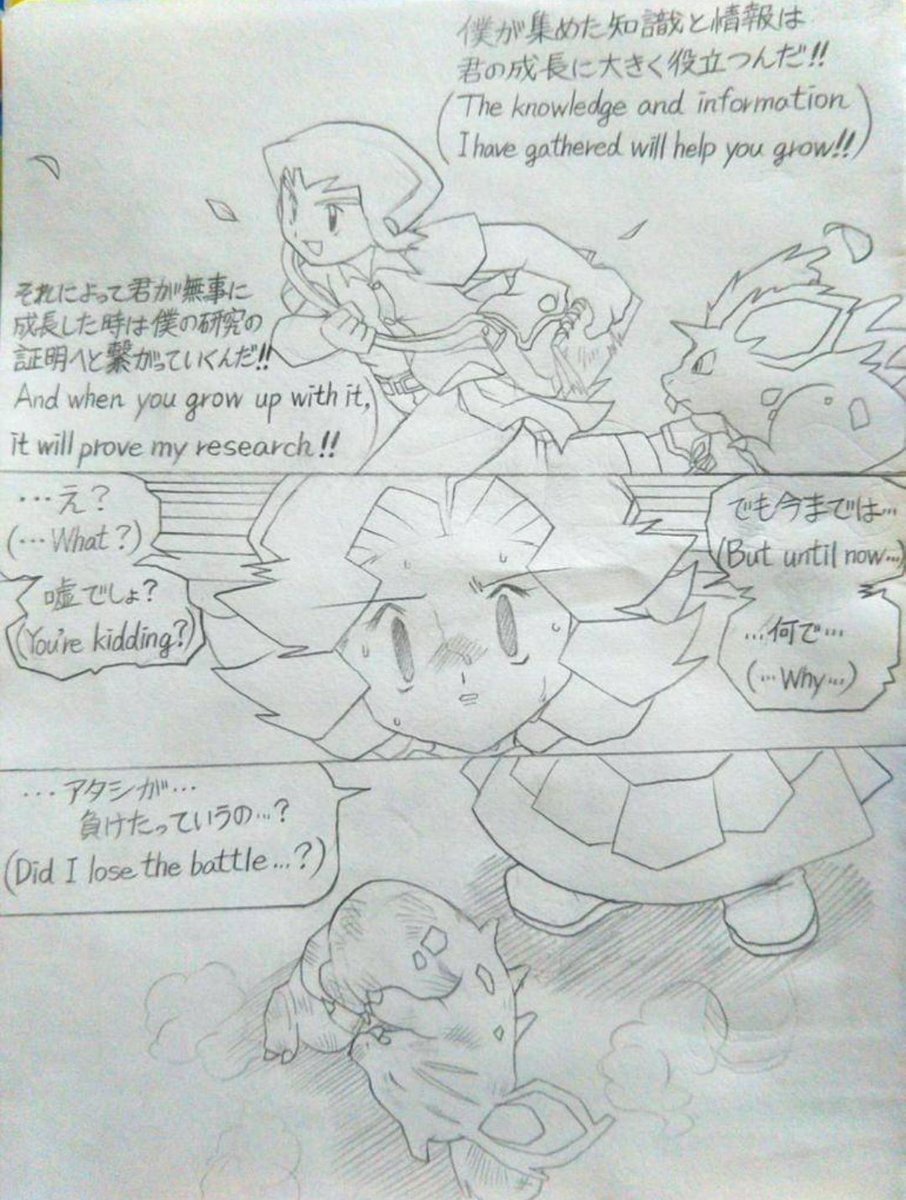 僕が集めた知識と情報は
君の成長に大きく役立つんだ!!
(The knowledge and information
I have gathered will help you grow!!)
それによって君が無事に
成長した時は僕の研究の
証明へと繋がっていくんだ!!
And when you grow up with it,
it will prove my research!!)
でも今までは…
(But until now…)
…何で…
(…Why…)
…え?
(…What?)
嘘でしょ?
(You're kidding?)
…アタシが…
負けたっていうの…?
(Did I lose the battle…?)